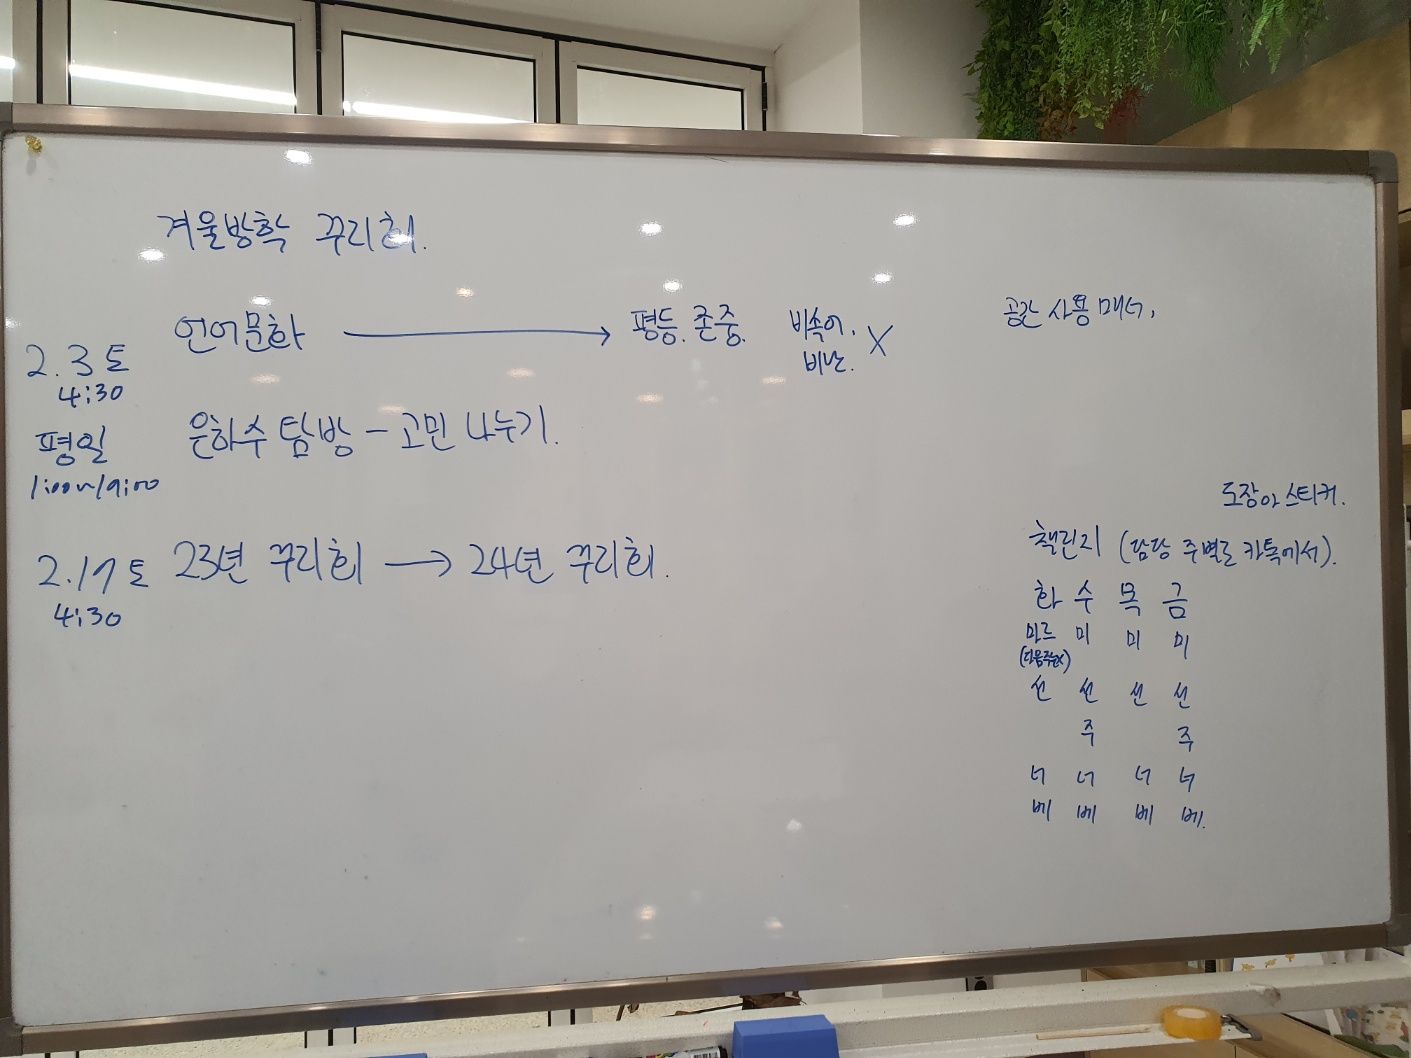 겨울방학 꾸리회.
언어문화 → 평등. 존중. 비속어. 비난. X
공간 사용 매너.
2. 3 토
4:30
평일
1:00~19:00
은하수 탐방 - 고민 나누기.
2. 17 토
4:30
23년 꾸리회 → 24년 꾸리회.
도장 or 스티커.
챌린지 (담당 주별로 카톡에서).
화 수 목 금
미르 미 미 미
(다음주는X)
선 선 선 선
주 주
너 너 너 너
베 베 베 베.